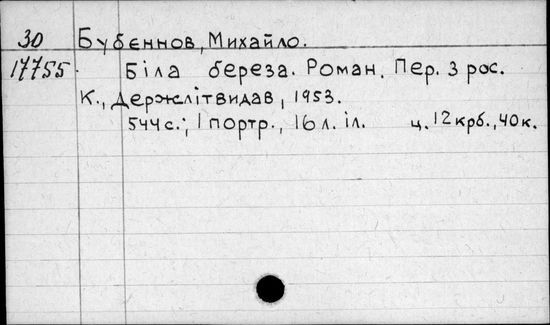 30 Бубєннов, Михайло.
17755 Біла береза. Роман. Пер. з рос.
К., Держлітвидав, 1953.
544 с.; 1 портр., 16 л. іл. ц. 12 крб., 40 к.